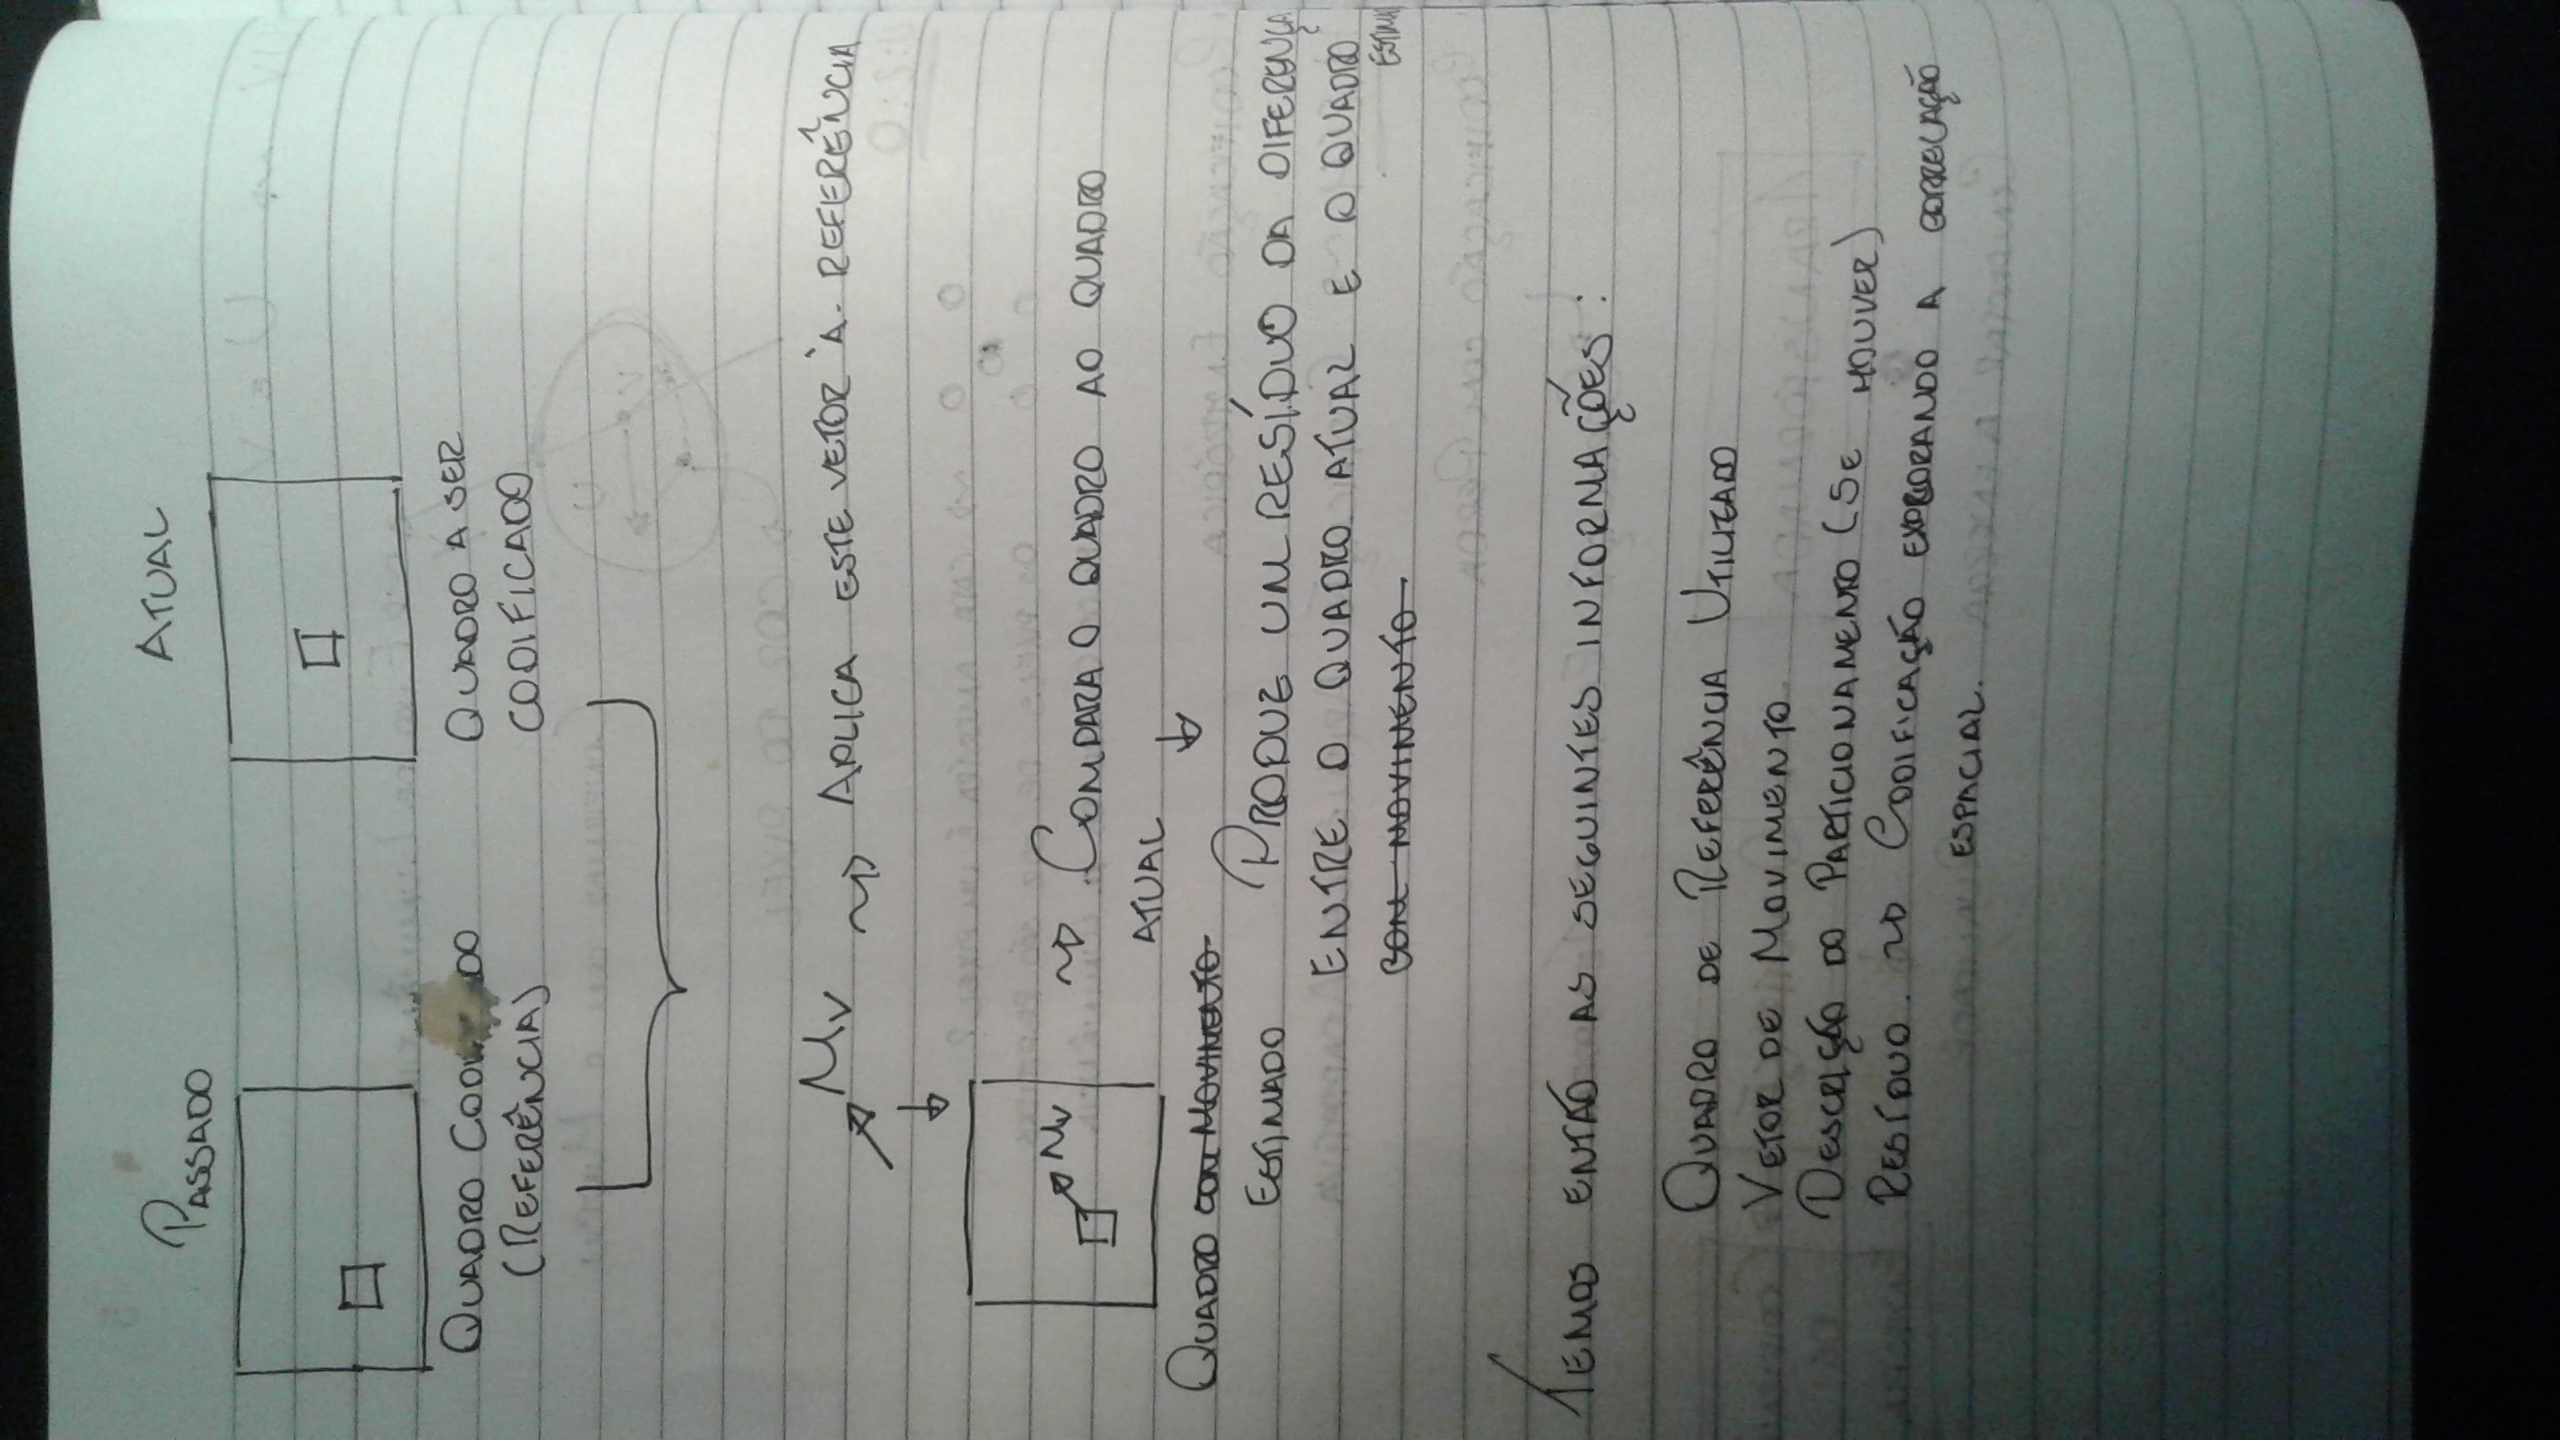 PASSADO
ATUAL
QUADRO DO
(REFERÊNCIA)
QUADRO A SER
CODIFICADO
MV ~> APLICA ESTE VETOR À REFERÊNCIA
MV ~> COMPARA O QUADRO AO QUADRO
ATUAL
QUADRO COM MOVIMENTO
ESTIMADO
PRODUZ UM RESÍDUO DA DIFERENÇA
ENTRE O QUADRO ATUAL E O QUADRO
ESTIMA
COM MOVIMENTO
TEMOS ENTÃO AS SEGUINTES INFORMAÇÕES:
QUADRO DE REFERÊNCIA UTILIZADO
VETOR DE MOVIMENTO
DESCRIÇÃO DO PARTICIONAMENTO (SE HOUVER)
RESÍDUO. ~> CODIFICAÇÃO EXPLORANDO A CORRELAÇÃO
ESPACIAL.